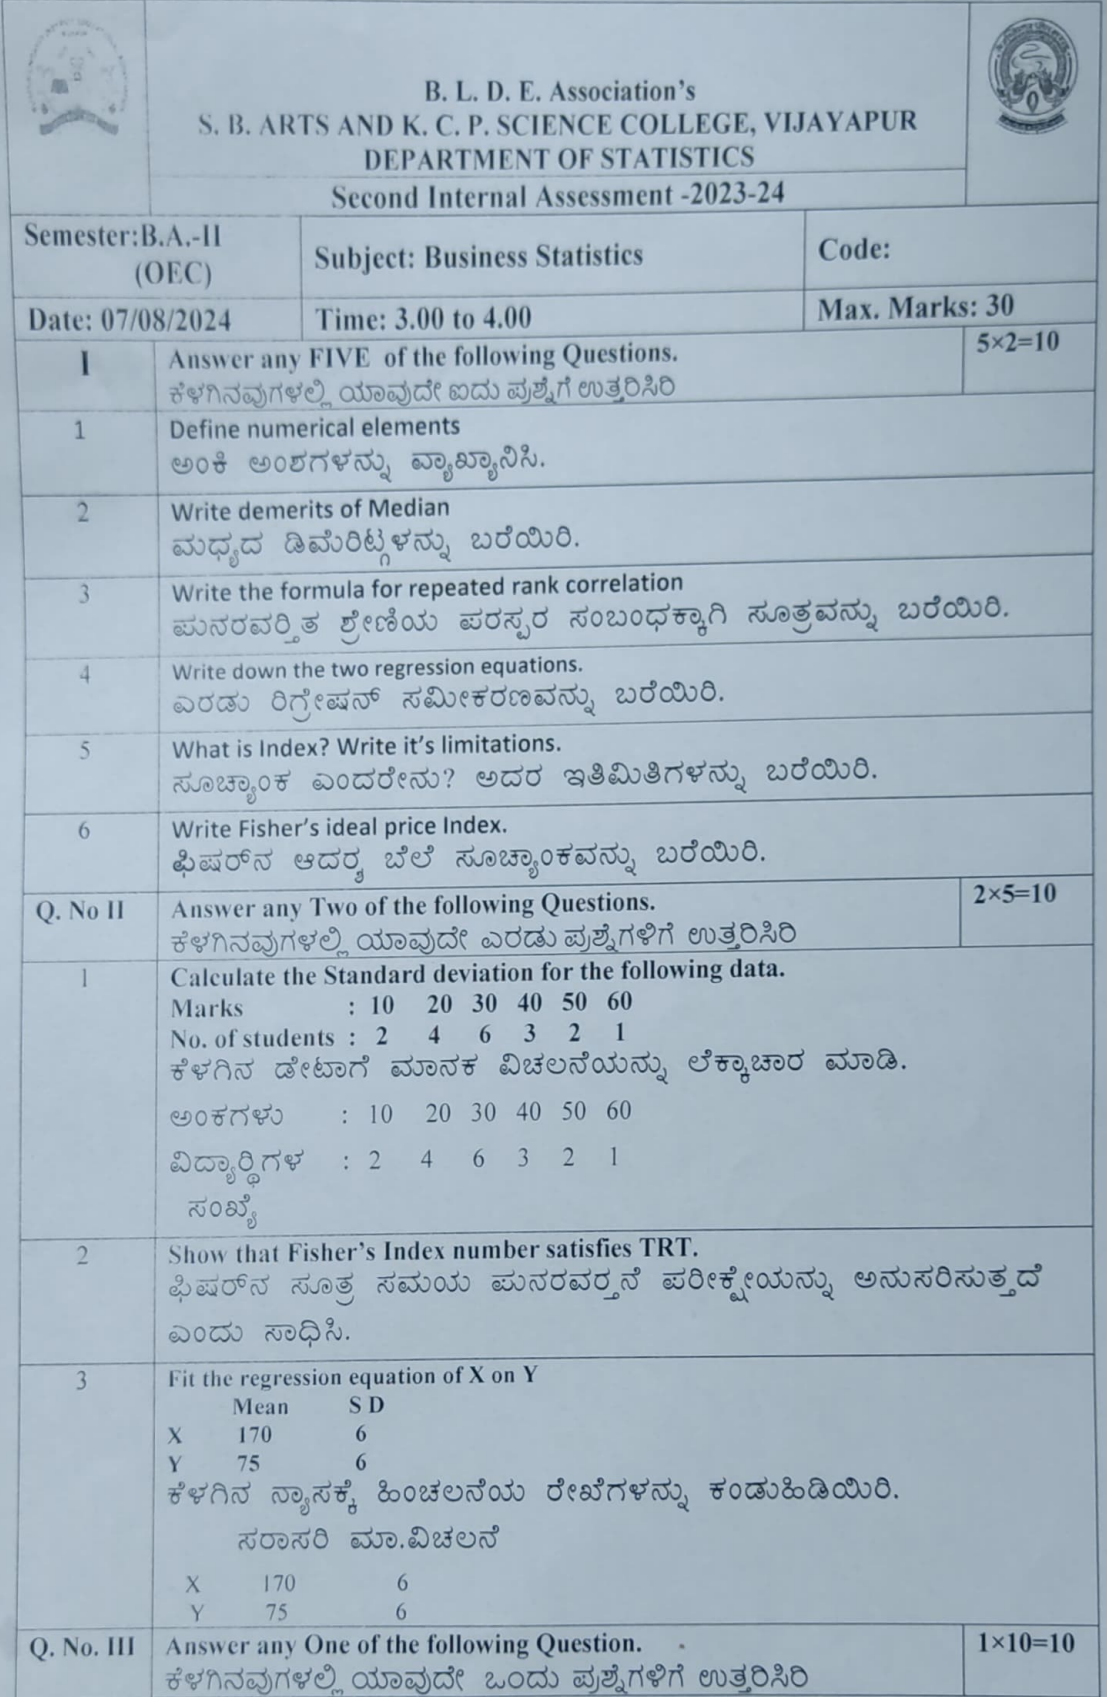 B. L. D. E. Association's
S. B. ARTS AND K. C. P. SCIENCE COLLEGE, VIJAYAPUR
DEPARTMENT OF STATISTICS
Second Internal Assessment -2023-24
Semester:B.A.-II
(OEC)
Subject: Business Statistics
Code:
Date: 07/08/2024
Time: 3.00 to 4.00
Max. Marks: 30
I Answer any FIVE of the following Questions. 5×2=10
ಕೆಳಗಿನವುಗಳಲ್ಲಿ ಯಾವುದೇ ಐದು ಪ್ರಶ್ನೆಗೆ ಉತ್ತರಿಸಿರಿ
1 Define numerical elements
ಅಂಕಿ ಅಂಶಗಳನ್ನು ವ್ಯಾಖ್ಯಾನಿಸಿ.
2 Write demerits of Median
ಮಧ್ಯದ ಡಿಮೆರಿಟ್ಗಳನ್ನು ಬರೆಯಿರಿ.
3 Write the formula for repeated rank correlation
ಪುನರವರ್ತಿತ ಶ್ರೇಣಿಯ ಪರಸ್ಪರ ಸಂಬಂಧಕ್ಕಾಗಿ ಸೂತ್ರವನ್ನು ಬರೆಯಿರಿ.
4 Write down the two regression equations.
ಎರಡು ರಿಗ್ರೇಷನ್ ಸಮೀಕರಣವನ್ನು ಬರೆಯಿರಿ.
5 What is Index? Write it's limitations.
ಸೂಚ್ಯಾಂಕ ಎಂದರೇನು? ಅದರ ಇತಿಮಿತಿಗಳನ್ನು ಬರೆಯಿರಿ.
6 Write Fisher's ideal price Index.
ಫಿಷರ್‌ನ ಆದರ್ಶ ಬೆಲೆ ಸೂಚ್ಯಾಂಕವನ್ನು ಬರೆಯಿರಿ.
Q. No II Answer any Two of the following Questions. 2×5=10
ಕೆಳಗಿನವುಗಳಲ್ಲಿ ಯಾವುದೇ ಎರಡು ಪ್ರಶ್ನೆಗಳಿಗೆ ಉತ್ತರಿಸಿರಿ
1 Calculate the Standard deviation for the following data.
Marks : 10 20 30 40 50 60
No. of students : 2 4 6 3 2 1
ಕೆಳಗಿನ ಡೇಟಾಗೆ ಮಾನಕ ವಿಚಲನೆಯನ್ನು ಲೆಕ್ಕಾಚಾರ ಮಾಡಿ.
ಅಂಕಗಳು : 10 20 30 40 50 60
ವಿದ್ಯಾರ್ಥಿಗಳ : 2 4 6 3 2 1
ಸಂಖ್ಯೆ
2 Show that Fisher's Index number satisfies TRT.
ಫಿಷರ್‌ನ ಸೂತ್ರ ಸಮಯ ಪುನರವರ್ತನೆ ಪರೀಕ್ಷೇಯನ್ನು ಅನುಸರಿಸುತ್ತದೆ
ಎಂದು ಸಾಧಿಸಿ.
3 Fit the regression equation of X on Y
Mean S D
X 170 6
Y 75 6
ಕೆಳಗಿನ ನ್ಯಾಸಕ್ಕೆ ಹಿಂಚಲನೆಯ ರೇಖೆಗಳನ್ನು ಕಂಡುಹಿಡಿಯಿರಿ.
ಸರಾಸರಿ ಮಾ.ವಿಚಲನೆ
X 170 6
Y 75 6
Q. No. III Answer any One of the following Question. 1×10=10
ಕೆಳಗಿನವುಗಳಲ್ಲಿ ಯಾವುದೇ ಒಂದು ಪ್ರಶ್ನೆಗಳಿಗೆ ಉತ್ತರಿಸಿರಿ